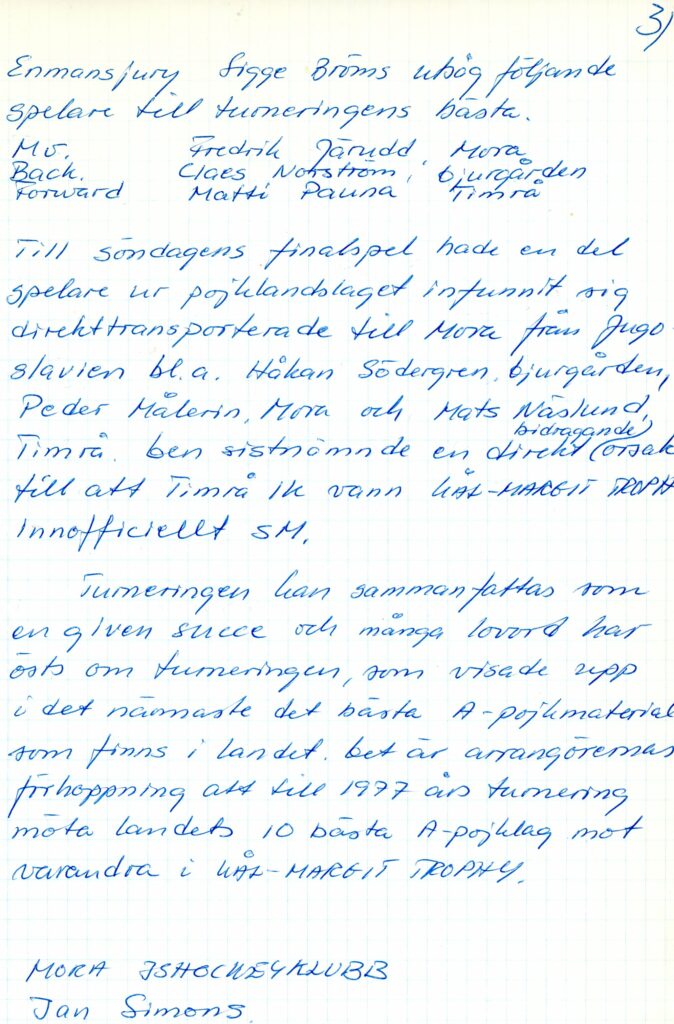 3)
Enmansjury Sigge Bröms utsåg följande
spelare till turneringens bästa.
Mv. Fredrik Järudd, Mora
Back. Claes Norström, Djurgården
Forward Matti Pauna Timrå
Till söndagens finalspel hade en del
spelare ur pojklandslaget infunnit sig
direkttransporterade till Mora från Jugo-
slavien bl.a. Håkan Södergren, Djurgården,
Peder Målerin, Mora och Mats Näslund,
Timrå. Den sistnämnde en direkt (bidragande) orsak
till att Timrå IK vann KÅL-MARGIT TROPH
innofficiellt SM.
Turneringen kan sammanfattas som
en given succe och många lovord har
östs om turneringen, som visade upp
i det närmaste det bästa A-pojkmaterial
som finns i landet. Det är arrangörernas
förhoppning att till 1977 års turnering
möta landets 10 bästa A-pojklag mot
varandra i KÅL-MARGIT TROPHY.
MORA ISHOCKEYKLUBB
Jan Simons.